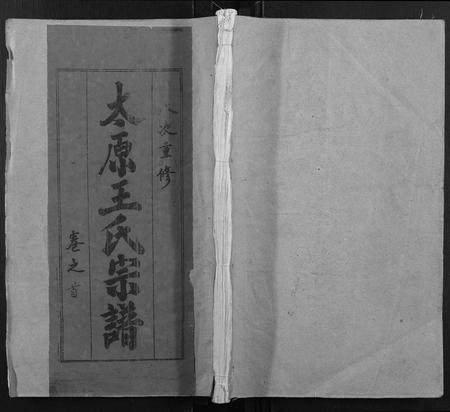 次重修
太原王氏宗譜
卷之首